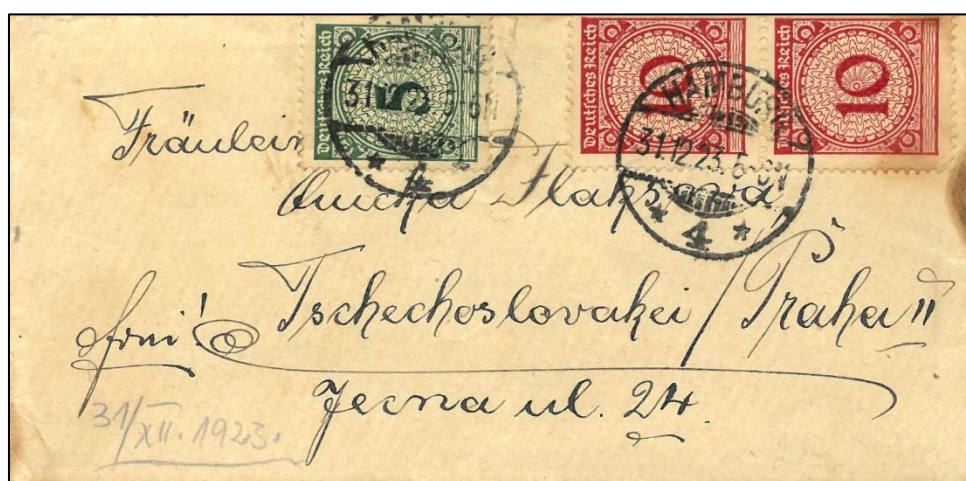 Deutsches Reich
5
Deutsches Reich
10
Deutsches Reich
10
HAMBURG
31.12.23.5-6N
* 4 *
Fräulein
Tschechoslovakei / Praha II
frei!
Jecna ul. 24.
31/XII. 1923.